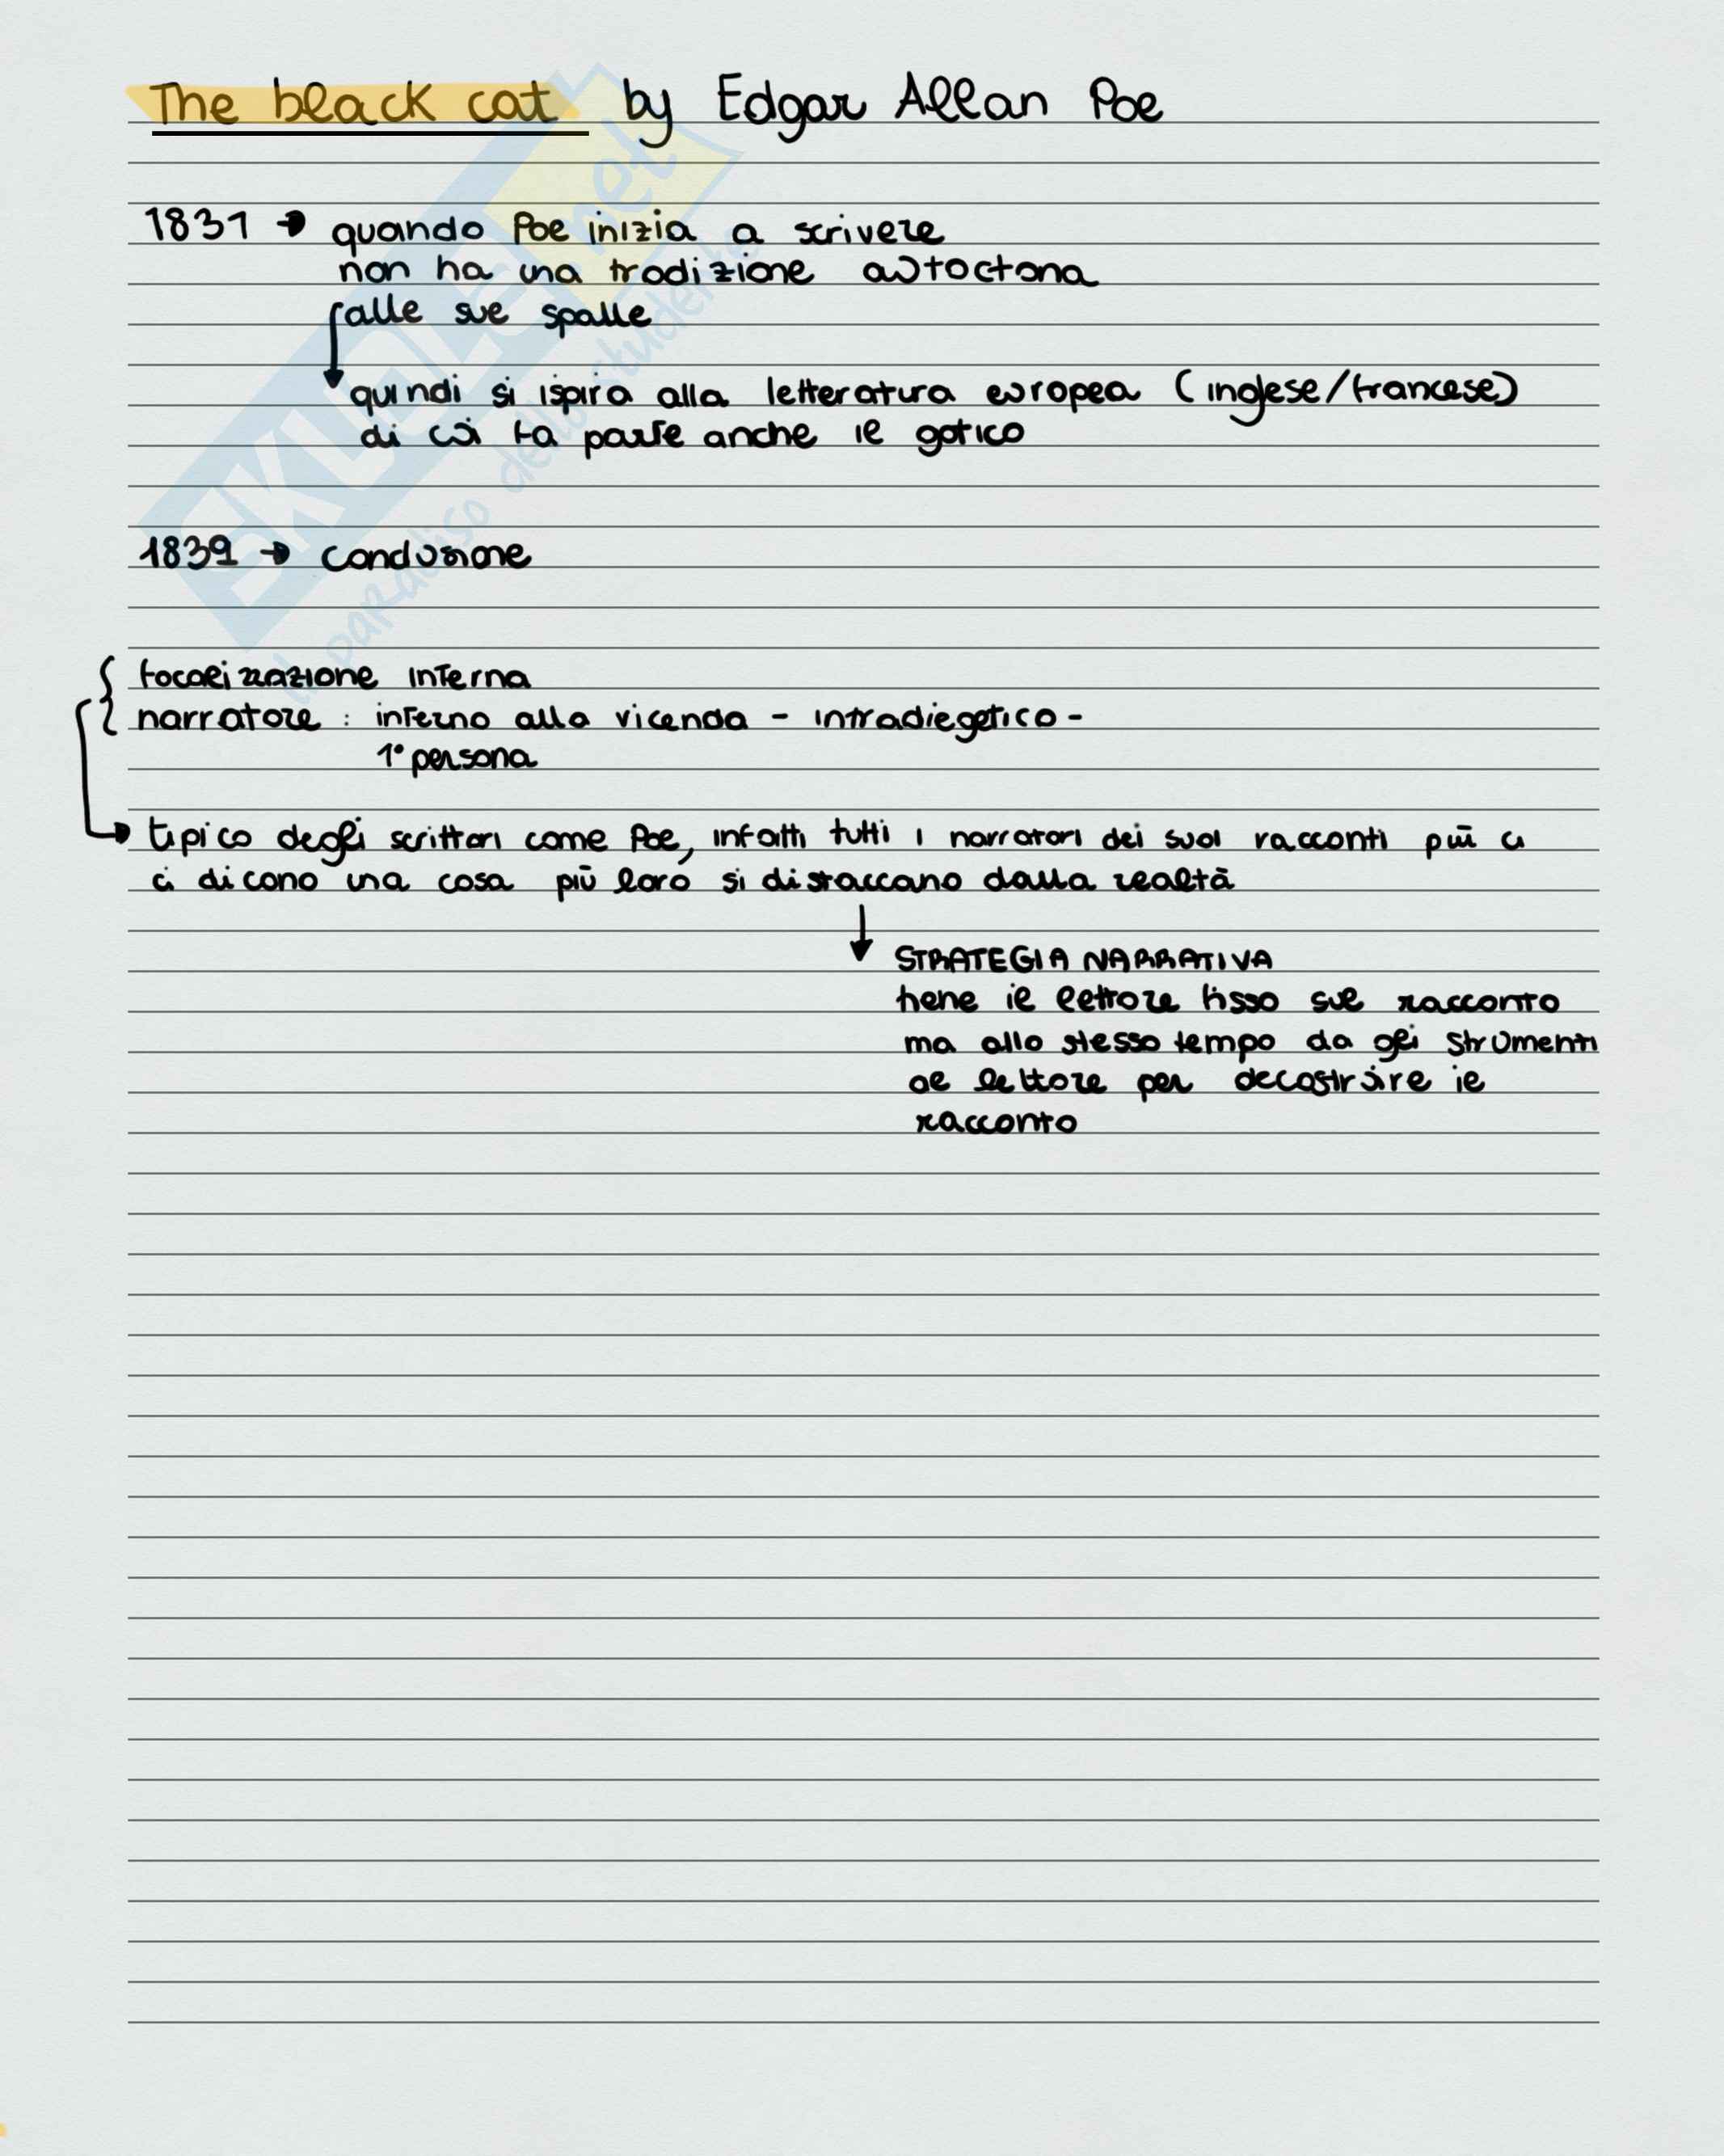 The black cat by Edgar Allan Poe
1831 → quando Poe inizia a scrivere
non ha una tradizione autoctona
alle sue spalle
quindi si ispira alla letteratura europea (inglese/francese)
di cui fa parte anche il gotico
1839 → conclusione
focalizzazione interna
narratore : interno alla vicenda - intradiegetico -
1° persona
tipico degli scrittori come Poe, infatti tutti i narratori dei suoi racconti più ci
ci dicono una cosa più loro si distaccano dalla realtà
STRATEGIA NARRATIVA
tiene il lettore fisso sul racconto
ma allo stesso tempo da gli strumenti
al lettore per decostruire il
racconto
SKUOLA.net
il paradiso dello studente